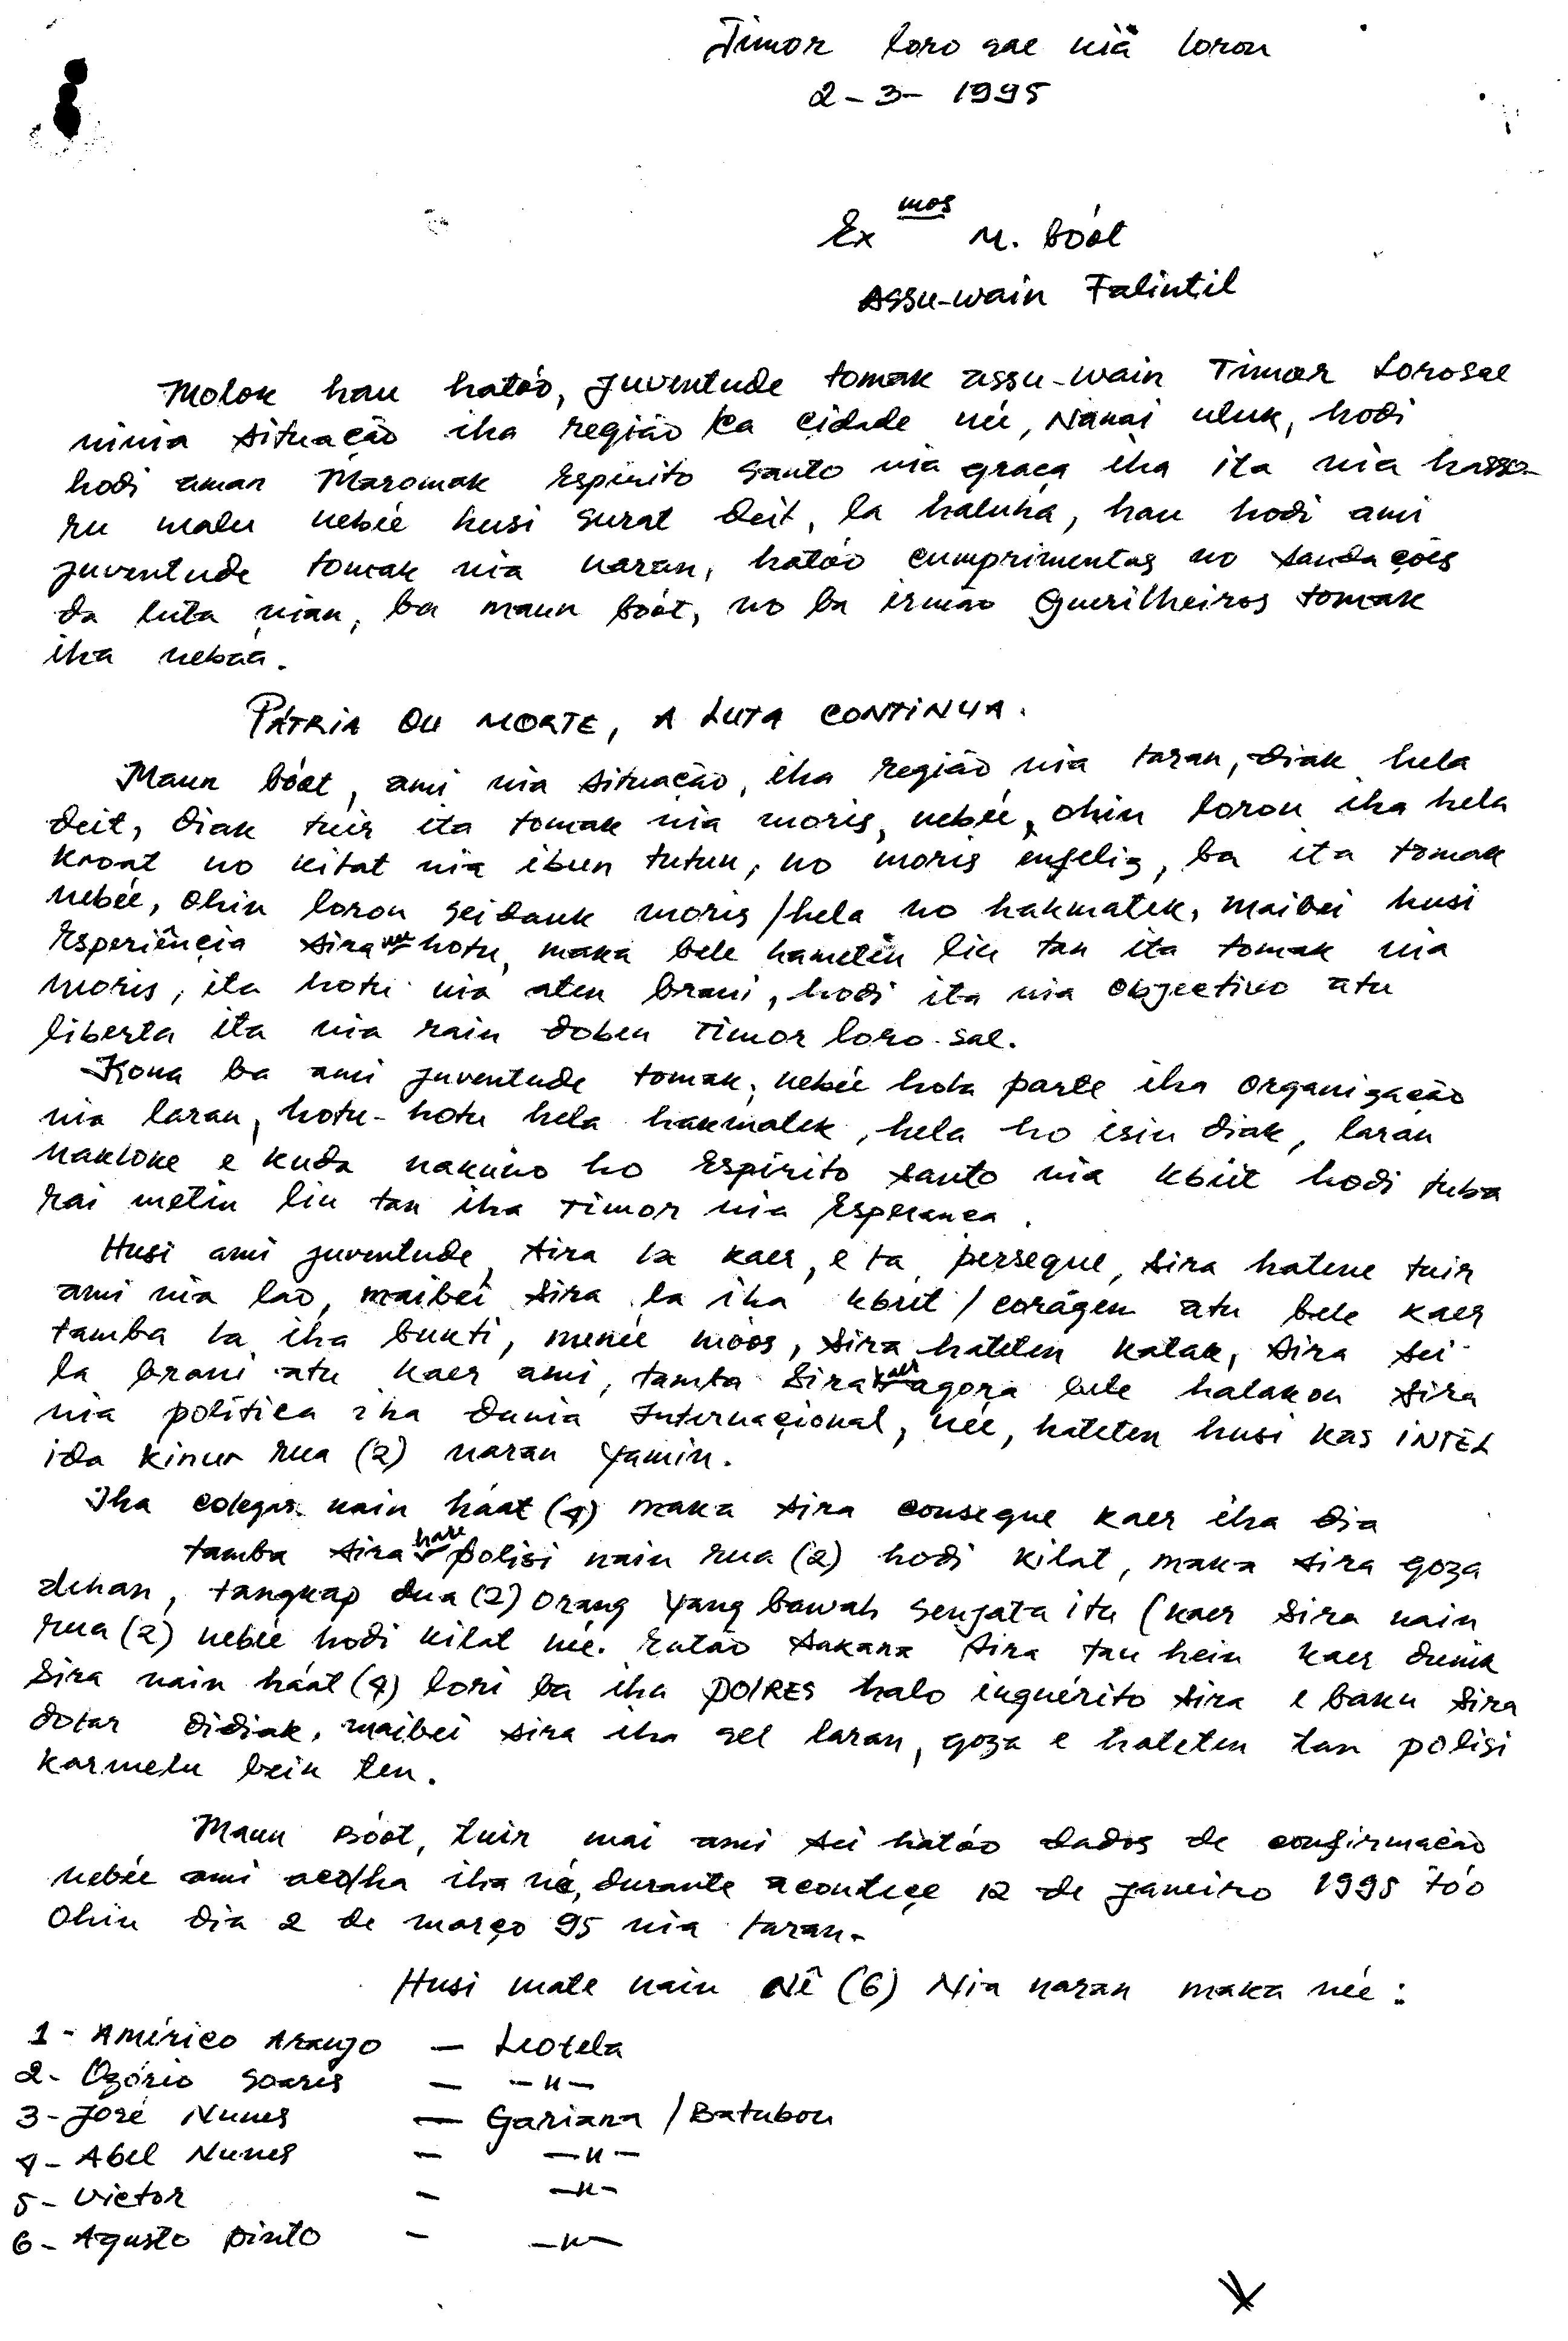 Timor loro sae niä loron
2-3- 1995
Ex mos M. bóot
Assu-wain Falintil
Molok hau hatóo, juventude tomak assu-wain Timor Lorosae
ninia situação iha região ka cidade née, Nanai uluk, hodi
hodi aman Maromak Espirito Santo nia graça iha ita nia hasso-
ru malu nebée husi surat deit, la haluha, hau hodi ami
juventude tomak nia naran, hatóo cumprimentos no saudações
da luta nian, ba maun bóot, no ba irmão Guerilheiros tomak
iha nebaa.
PÁTRIA OU MORTE, A LUTA CONTINUA.
Maun bóot, ami nia situação, iha região nia laran, diak hela
deit, diak tuir ita tomak nia moris, nebée, ohin loron iha hela
kroat no kilat nia ibun tutun, no moris enfeliz, ba ita tomak
nebée, ohin loron seidauk moris/hela ho hakmatek, maibei husi
Esperiência sira née hotu, maka bele hametin liu tan ita tomak nia
moris, ita hotu nia aten brani, hodi ita nia objectivo atu
liberta ita nia rain doben Timor loro-sae.
Kona ba ami juventude tomak, nebée hola parte iha organização
nia laran, hotu-hotu hela hakmatek, hela ho isin diak, laran
nakloke e kuda nakuno ho Espirito Santo nia kbiit hodi tuba
rai metin liu tan iha Timor nia Esperança.
Husi ami juventude, sira la kaer, e la persegue, sira hatene tuir
ami nia lao, maibei sira la iha kbiit/corágen atu bele kaer
tamba la iha bukti, menée móos, sira hateten katak, sira sei
la brani atu kaer ami, tamba sira kaer agora bele halakon sira
nia politica iha dunia Internaçional, née, hateten husi kas INTEL
ida kinur rua (2) naran Yamin.
Iha colegas nain háat (4) maka sira consegue kaer iha dia
tamba sira hare polisi nain rua (2) hodi kilat, maka sira goza
dehan, tangkap dua (2) orang yang bawah senjata itu (kaer sira nain
rua (2) nebée hodi kilat née. Entáo sakana sira tau hein kaer dunik
sira nain háat (4) lori ba iha POLRES halo inquérito sira e baku sira
dolar didiak, maibei sira iha sel laran, goza e hateten tan polisi
karmelu bein ten.
Maun Bóot, tuir mai ami sei hatóo dados de confirmação
nebée ami acolha iha né, durante acontece 12 de janeiro 1995 tóo
Ohin dia 2 de março 95 nia laran.
Husi mate nain Nê (6) Nia naran maka née:
1- Américo Araujo — Leotela
2- Ozório Soares — -"-
3- José Nunes — Gariana/Batubou
4- Abel Nunes - -"-
5- Victor - -"-
6- Agusto pinto - -"-